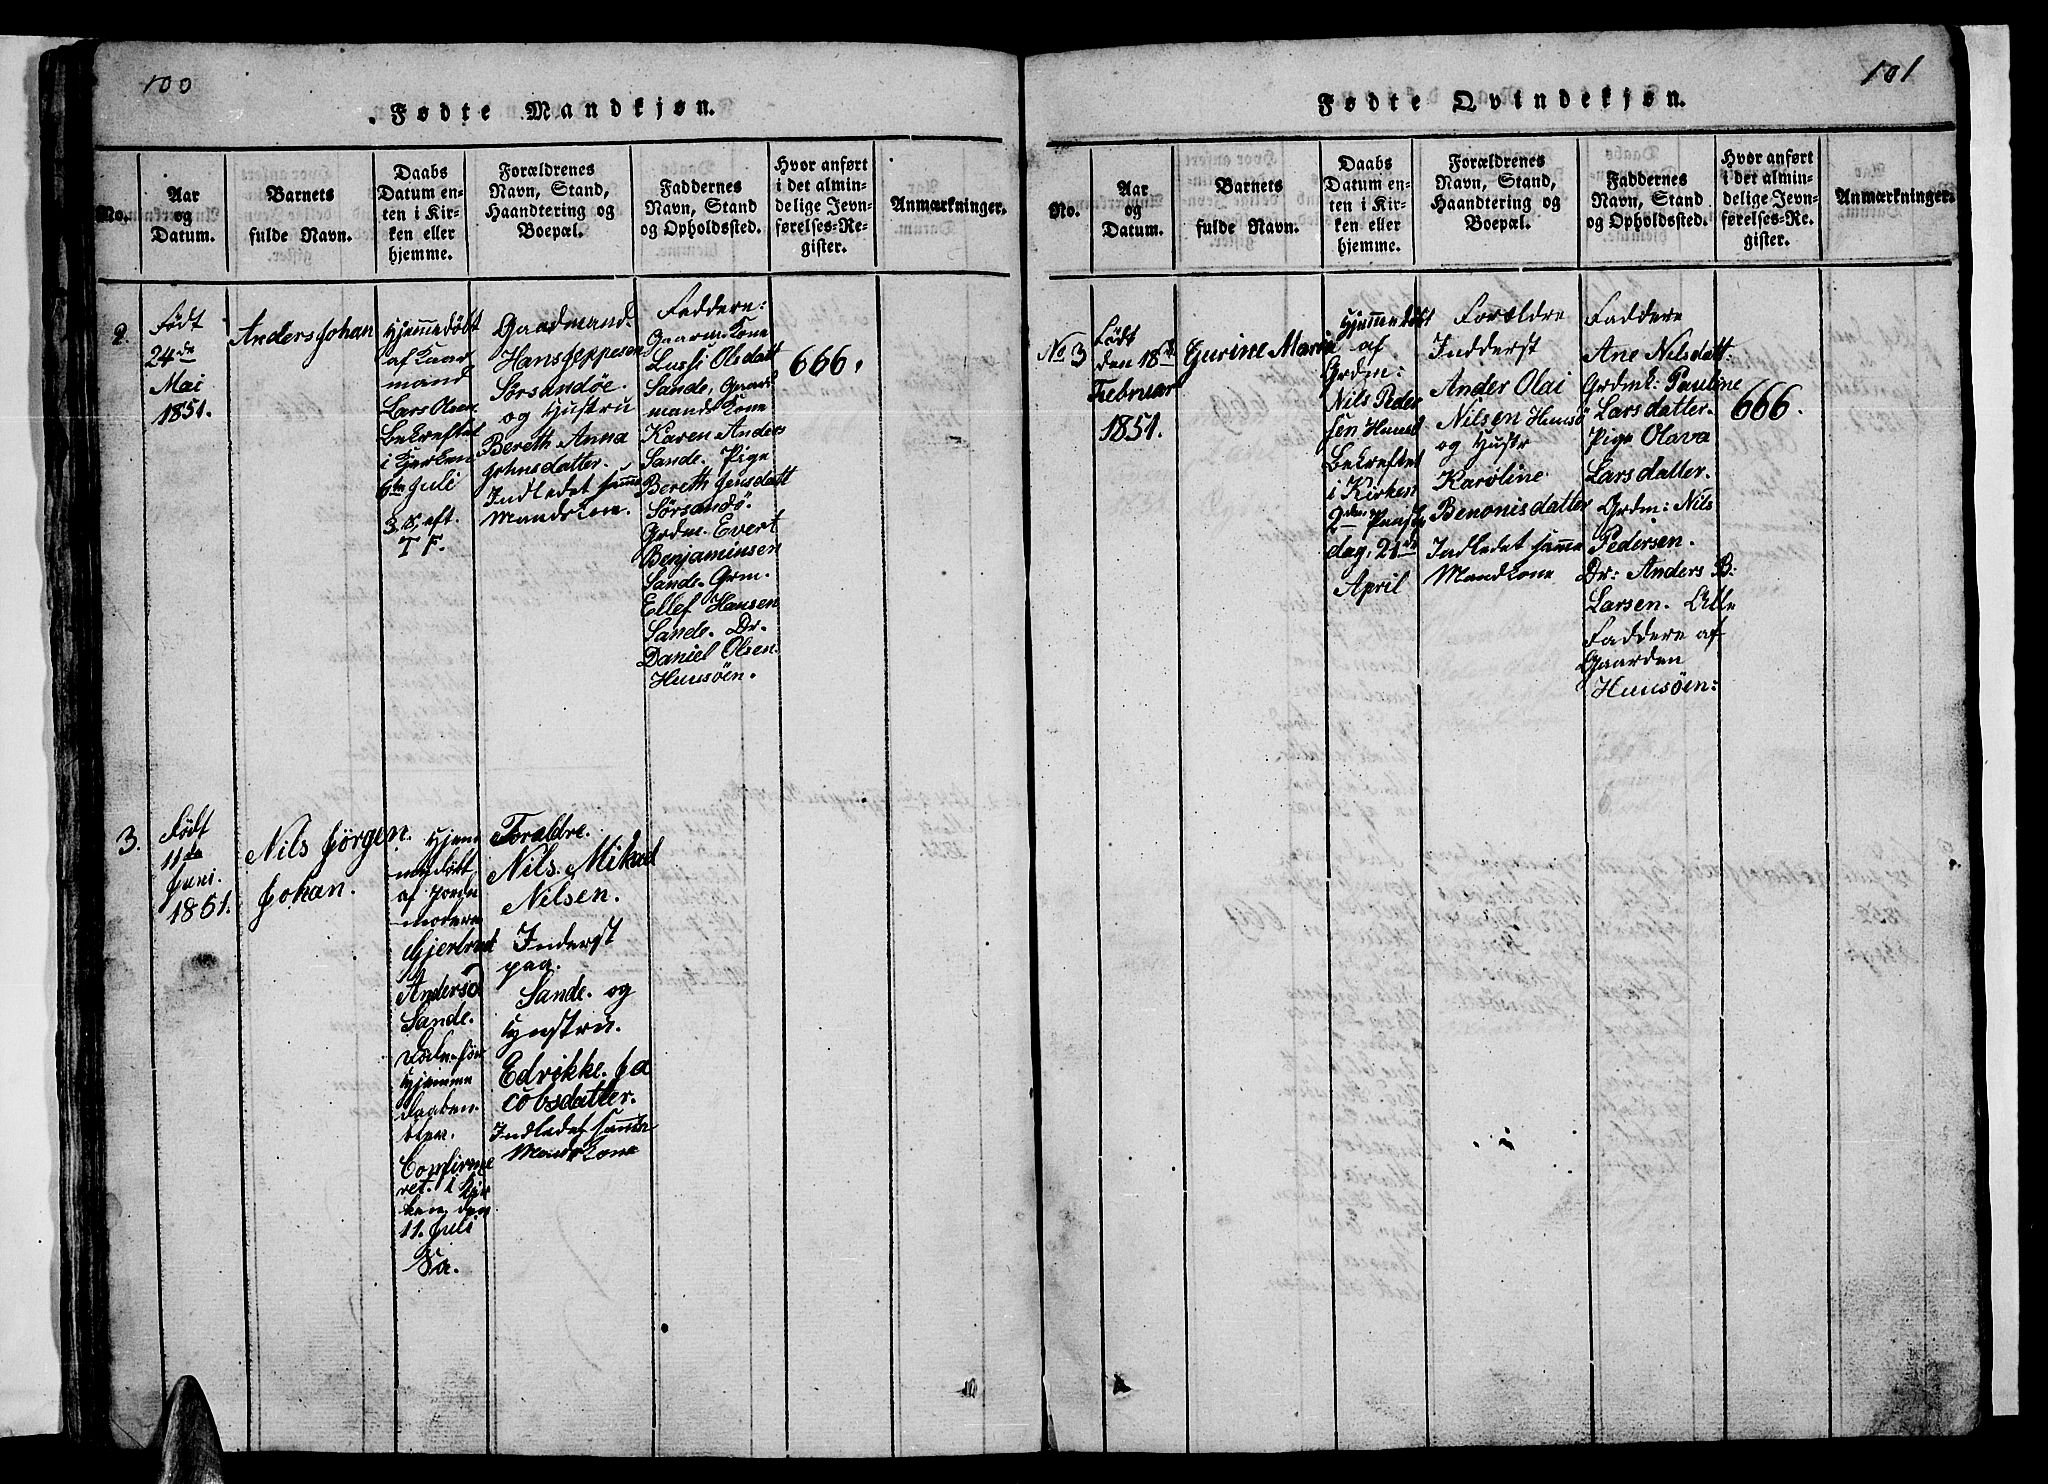 100
Fødte Mandkjøn.
No.
Aar
og
Datum.
Barnets
fulde Navn.
Daabs
Datum en-
ten i Kir-
ken eller
hjemme.
Forældrenes
Navn, Stand,
Haandtering og
Boepæl.
Faddernes
Navn, Stand
og Opholdssted.
Hvor anført
i det almin-
delige Jevn-
førelses-Re-
gister.
Anmærkninger.
2.
Født
24de
Mai
1851.
Anders Johan
Hjemmedøbt
af Gaar
mand
Lars Olsen
Bekreftet
i Kjerken
6te Juli
3. S. eft.
T F.
Gaadmand.
Hans Jeppesen
Sørsandøe.
og Hustru
Bereth Anna
Johnsdatter.
Indledet samme
Mandskone.
Faddere:
Gaarm: Kone
Lussi Olsdatt
Sande, Gaard
mands Kone
Karen Anders
Sande. Pige
Bereth Jensdatt
Sørsandø.
Grdm. Evert
Benjaminsen
Sande. Grm.
Ellef Hansen
Sande. Dr.
Daniel Olsen
Huusøen.
666.
3.
Født
11de
Juni.
1851.
Nils Jørgen
Johan.
Hjem
medøbt
af Jorde
moderen
Gjertrud
Andersd
Sande.
Hjemme
daaben
Confirme
ret. i Kir
ken den
11. Juli
Forældre.
Nils. Mikael
Nilsen.
Inderst
paa.
Sande. og
Hustru.
Edrikke. Ja
cobsdatter.
Indledet samme
Mandskone
101
Fødte Qvindekjøn.
No.
Aar
og
Datum.
Barnets
fulde Navn.
Daabs
Datum en-
ten i Kir-
ken eller
hjemme.
Forældrenes
Navn, Stand,
Haandtering og
Boepæl.
Faddernes
Navn, Stand
og Opholdssted.
Hvor anført
i det almin-
delige Jevn-
førelses-Re-
gister.
Anmærkninger.
No 3
Født
den 18de
Februar
1851.
Gurine Maria
Hjemmedøbt
af
Grdm:
Nils Peder
sen Huusø
Bekreftet
i Kirken
2den Paaske
dag, 21de
April
Forældre
Indderst
Ander Olai
Nilsen Huusø
og Hustr
Karoline
Benonisdatter
Indledet samme
Mandkone
Faddere
Ane Nilsdatt:
Grdmk: Pauline
Larsdatter.
Pige Olava
Larsdatter.
Grdm: Nils
Pedersen.
Dr: Anders B:
Larsen. Alle
Faddere af
Gaarden
Huusøen:
666.